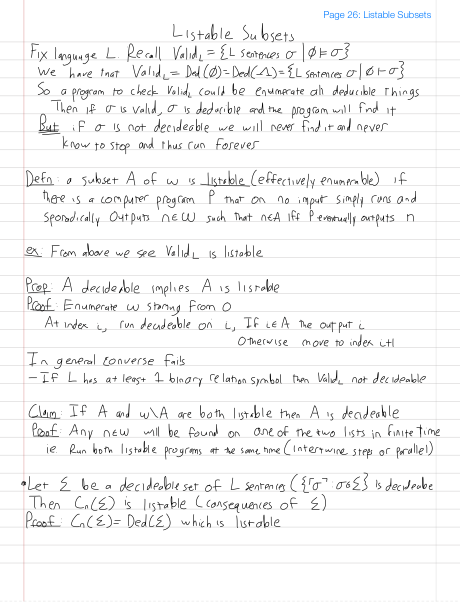 Page 26: Listable Subsets
Listable Subsets
Fix language L. Recall Valid_L = {L sentences σ | ∅ ⊨ σ}
We have that Valid_L = Ded(∅) = Ded(Λ) = {L sentences σ | ∅ ⊢ σ}
So a program to check Valid_L could be enumerate all deducible things
Then if σ is valid, σ is deducible and the program will find it
But if σ is not decideable we will never find it and never
know to stop and thus run forever
Defn: a subset A of ω is listable (effectively enumerable) if
there is a computer program P that on no input simply runs and
sporadically outputs n∈ω such that n∈A iff P eventually outputs n
ex: From above we see Valid_L is listable
Prop: A decideable implies A is listable
Proof: Enumerate ω staring from 0
At index i, run decideable on i, If i∈A the output i
Otherwise move to index i+1
In general converse fails
- If L has at least 1 binary relation symbol then Valid_L not decideable
Claim: If A and ω\A are both listable then A is decideable
Proof: Any n∈ω will be found on one of the two lists in finite time
ie. Run both listable programs at the same time (intertwine steps or parallel)
• Let Σ be a decideable set of L sentences ({⌜σ⌝: σ∈Σ} is decideable
Then Cn(Σ) is listable (consequences of Σ)
Proof: Cn(Σ) = Ded(Σ) which is listable